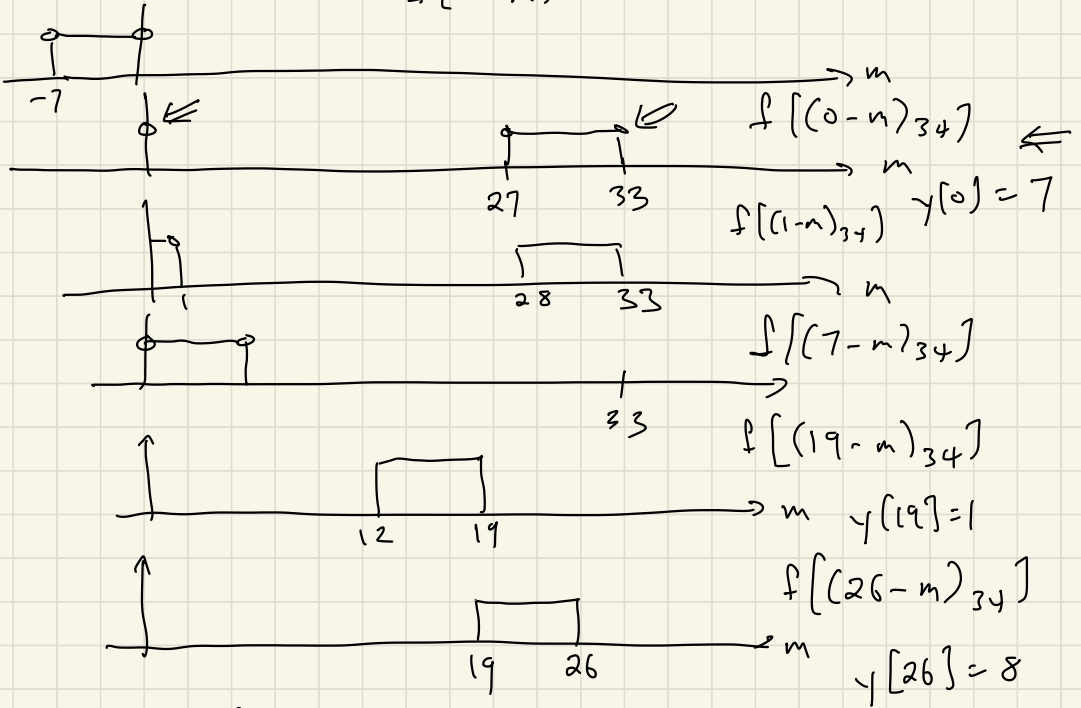 -7
m
f[(0-m)34]
27 33 m
y[0] = 7
f[(1-m)34]
1 28 33 m
f[(7-m)34]
33
f[(19-m)34]
12 19 m y[19]=1
f[(26-m)34]
19 26 m
y[26] = 8